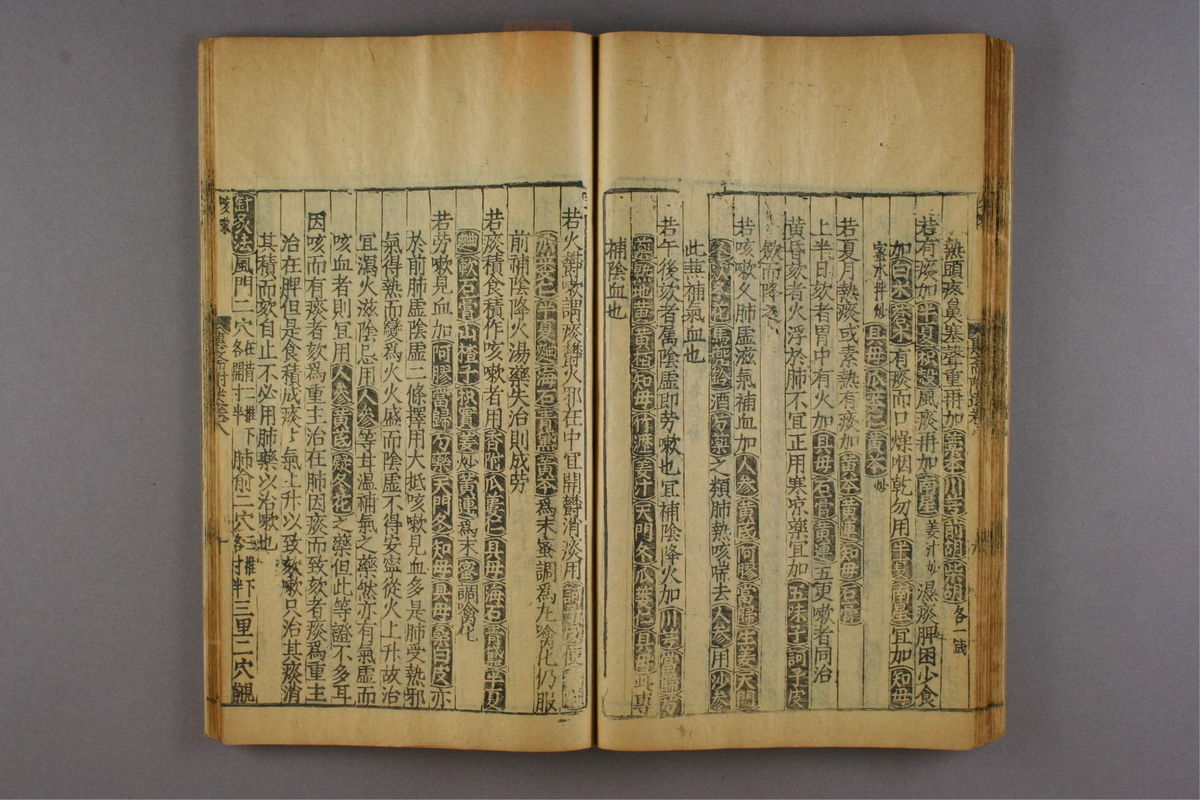 熱頭疼鼻塞聲重再加藁本川芎前胡柴胡各一錢
若有痰加半夏枳殼風痰再加南星姜汁炒濕痰脾困少食
加白朮蒼朮有痰而口燥咽乾勿用半夏南星宜加知母
蜜水拌炒貝母瓜蔞仁黃芩炒
若夏月熱痰或素熱有痰加黃芩黃連知母石膏
上半日欬者胃中有火加貝母石膏黃連五更嗽者同治
黃昏欬者火浮於肺不宜正用寒凉藥宜加五味子訶子皮
歛而降之
若咳嗽久肺虛滋氣補血加人參黃芪阿膠當歸生姜天門
冬款冬花馬兜鈴酒芍藥之類肺熱咳喘去人參用沙參
此兼補氣血也
若午後欬者属陰虛即劳嗽也宜補陰降火加川芎當歸芍
藥熟地黃黃栢知母竹瀝姜汁天門冬瓜蔞仁貝母此專
補陰血也
若火鬱嗽謂痰鬱火邪在中宜開鬱消痰用訶子皮便香附
瓜蔞仁半夏麯海石青黛黃芩爲末蜜調爲丸噙化仍服
前補陰降火湯藥失治則成劳
若痰積食積作咳嗽者用香附瓜蔞仁貝母海石青黛半夏
麯軟石膏山楂子枳實姜炒黃連爲末蜜調噙化
若劳嗽見血加阿膠當歸芍藥天門冬知母貝母桑白皮亦
於前肺虛陰虛二條擇用大抵咳嗽見血多是肺受熱邪
氣得熱而變爲火火盛而陰虛不得安寧從火上升故治
宜瀉火滋陰忌用人參等甘温補氣之藥然亦有氣虛而
咳血者則宜用人參黃芪款冬花之藥但此等證不多耳
因咳而有痰者欬爲重主治在肺因痰而致欬者痰爲重主
治在脾但是食積成痰痰氣上升以致欬嗽只治其痰消
其積而欬自止不必用肺藥以治嗽也
針灸法風門二穴在背二椎下各開寸半肺俞二穴三椎下各寸半三里二穴觀
咳嗽